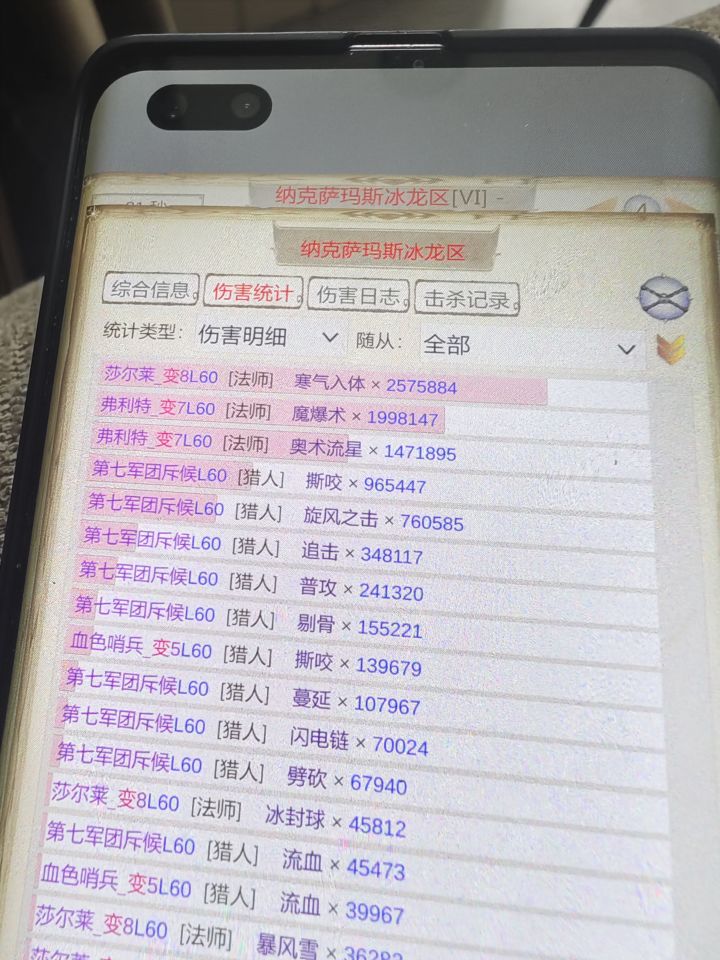 纳克萨玛斯冰龙区[VI] -
纳克萨玛斯冰龙区
综合信息 伤害统计 伤害日志 击杀记录
统计类型: 伤害明细 随从: 全部
莎尔莱_变8L60 [法师] 寒气入体 × 2575884
弗利特_变7L60 [法师] 魔爆术 × 1998147
弗利特_变7L60 [法师] 奥术流星 × 1471895
第七军团斥候L60 [猎人] 撕咬 × 965447
第七军团斥候L60 [猎人] 旋风之击 × 760585
第七军团斥候L60 [猎人] 追击 × 348117
第七军团斥候L60 [猎人] 普攻 × 241320
第七军团斥候L60 [猎人] 剔骨 × 155221
血色哨兵_变5L60 [猎人] 撕咬 × 139679
第七军团斥候L60 [猎人] 蔓延 × 107967
第七军团斥候L60 [猎人] 闪电链 × 70024
第七军团斥候L60 [猎人] 劈砍 × 67940
莎尔莱_变8L60 [法师] 冰封球 × 45812
第七军团斥候L60 [猎人] 流血 × 45473
血色哨兵_变5L60 [猎人] 流血 × 39967
莎尔莱_变8L60 [法师] 暴风雪 × 36282